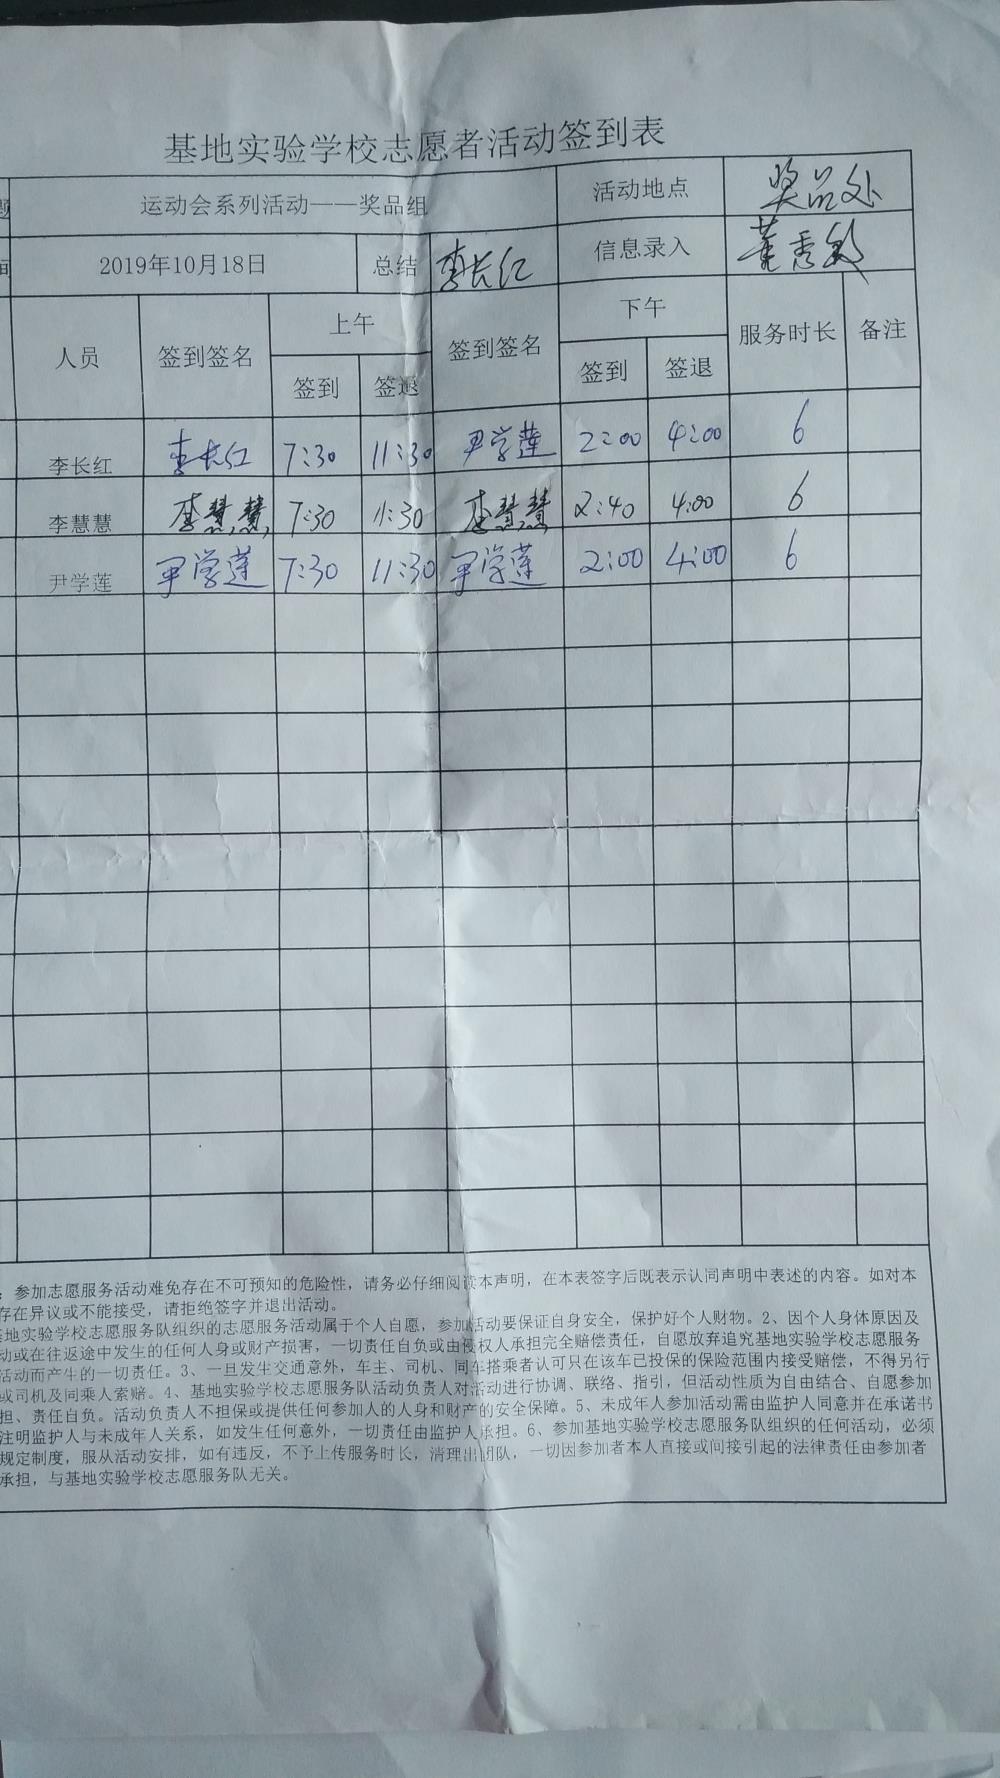 基地实验学校志愿者活动签到表
题 运动会系列活动——奖品组 活动地点 奖品处
间 2019年10月18日 总结 李长红 信息录入 董秀敏
人员 签到签名 上午 签到签名 下午 服务时长 备注
签到 签退 签到 签退
李长红 李长红 7:30 11:30 尹学莲 2:00 4:00 6
李慧慧 李慧慧 7:30 11:30 李慧慧 2:40 4:00 6
尹学莲 尹学莲 7:30 11:30 尹学莲 2:00 4:00 6
：参加志愿服务活动难免存在不可预知的危险性，请务必仔细阅读本声明，在本表签字后既表示认同声明中表述的内容。如对本
存在异议或不能接受，请拒绝签字并退出活动。
基地实验学校志愿服务队组织的志愿服务活动属于个人自愿，参加活动要保证自身安全，保护好个人财物。2、因个人身体原因及
动或在往返途中发生的任何人身或财产损害，一切责任自负或由侵权人承担完全赔偿责任，自愿放弃追究基地实验学校志愿服务
活动而产生的一切责任。3、一旦发生交通意外，车主、司机、同车搭乘者认可只在该车已投保的保险范围内接受赔偿，不得另行
或司机及同乘人索赔。4、基地实验学校志愿服务队活动负责人对活动进行协调、联络、指引，但活动性质为自由结合、自愿参加
担、责任自负。活动负责人不担保或提供任何参加人的人身和财产的安全保障。5、未成年人参加活动需由监护人同意并在承诺书
注明监护人与未成年人关系，如发生任何意外，一切责任由监护人承担。6、参加基地实验学校志愿服务队组织的任何活动，必须
规定制度，服从活动安排，如有违反，不予上传服务时长，清理出团队，一切因参加者本人直接或间接引起的法律责任由参加者
承担，与基地实验学校志愿服务队无关。